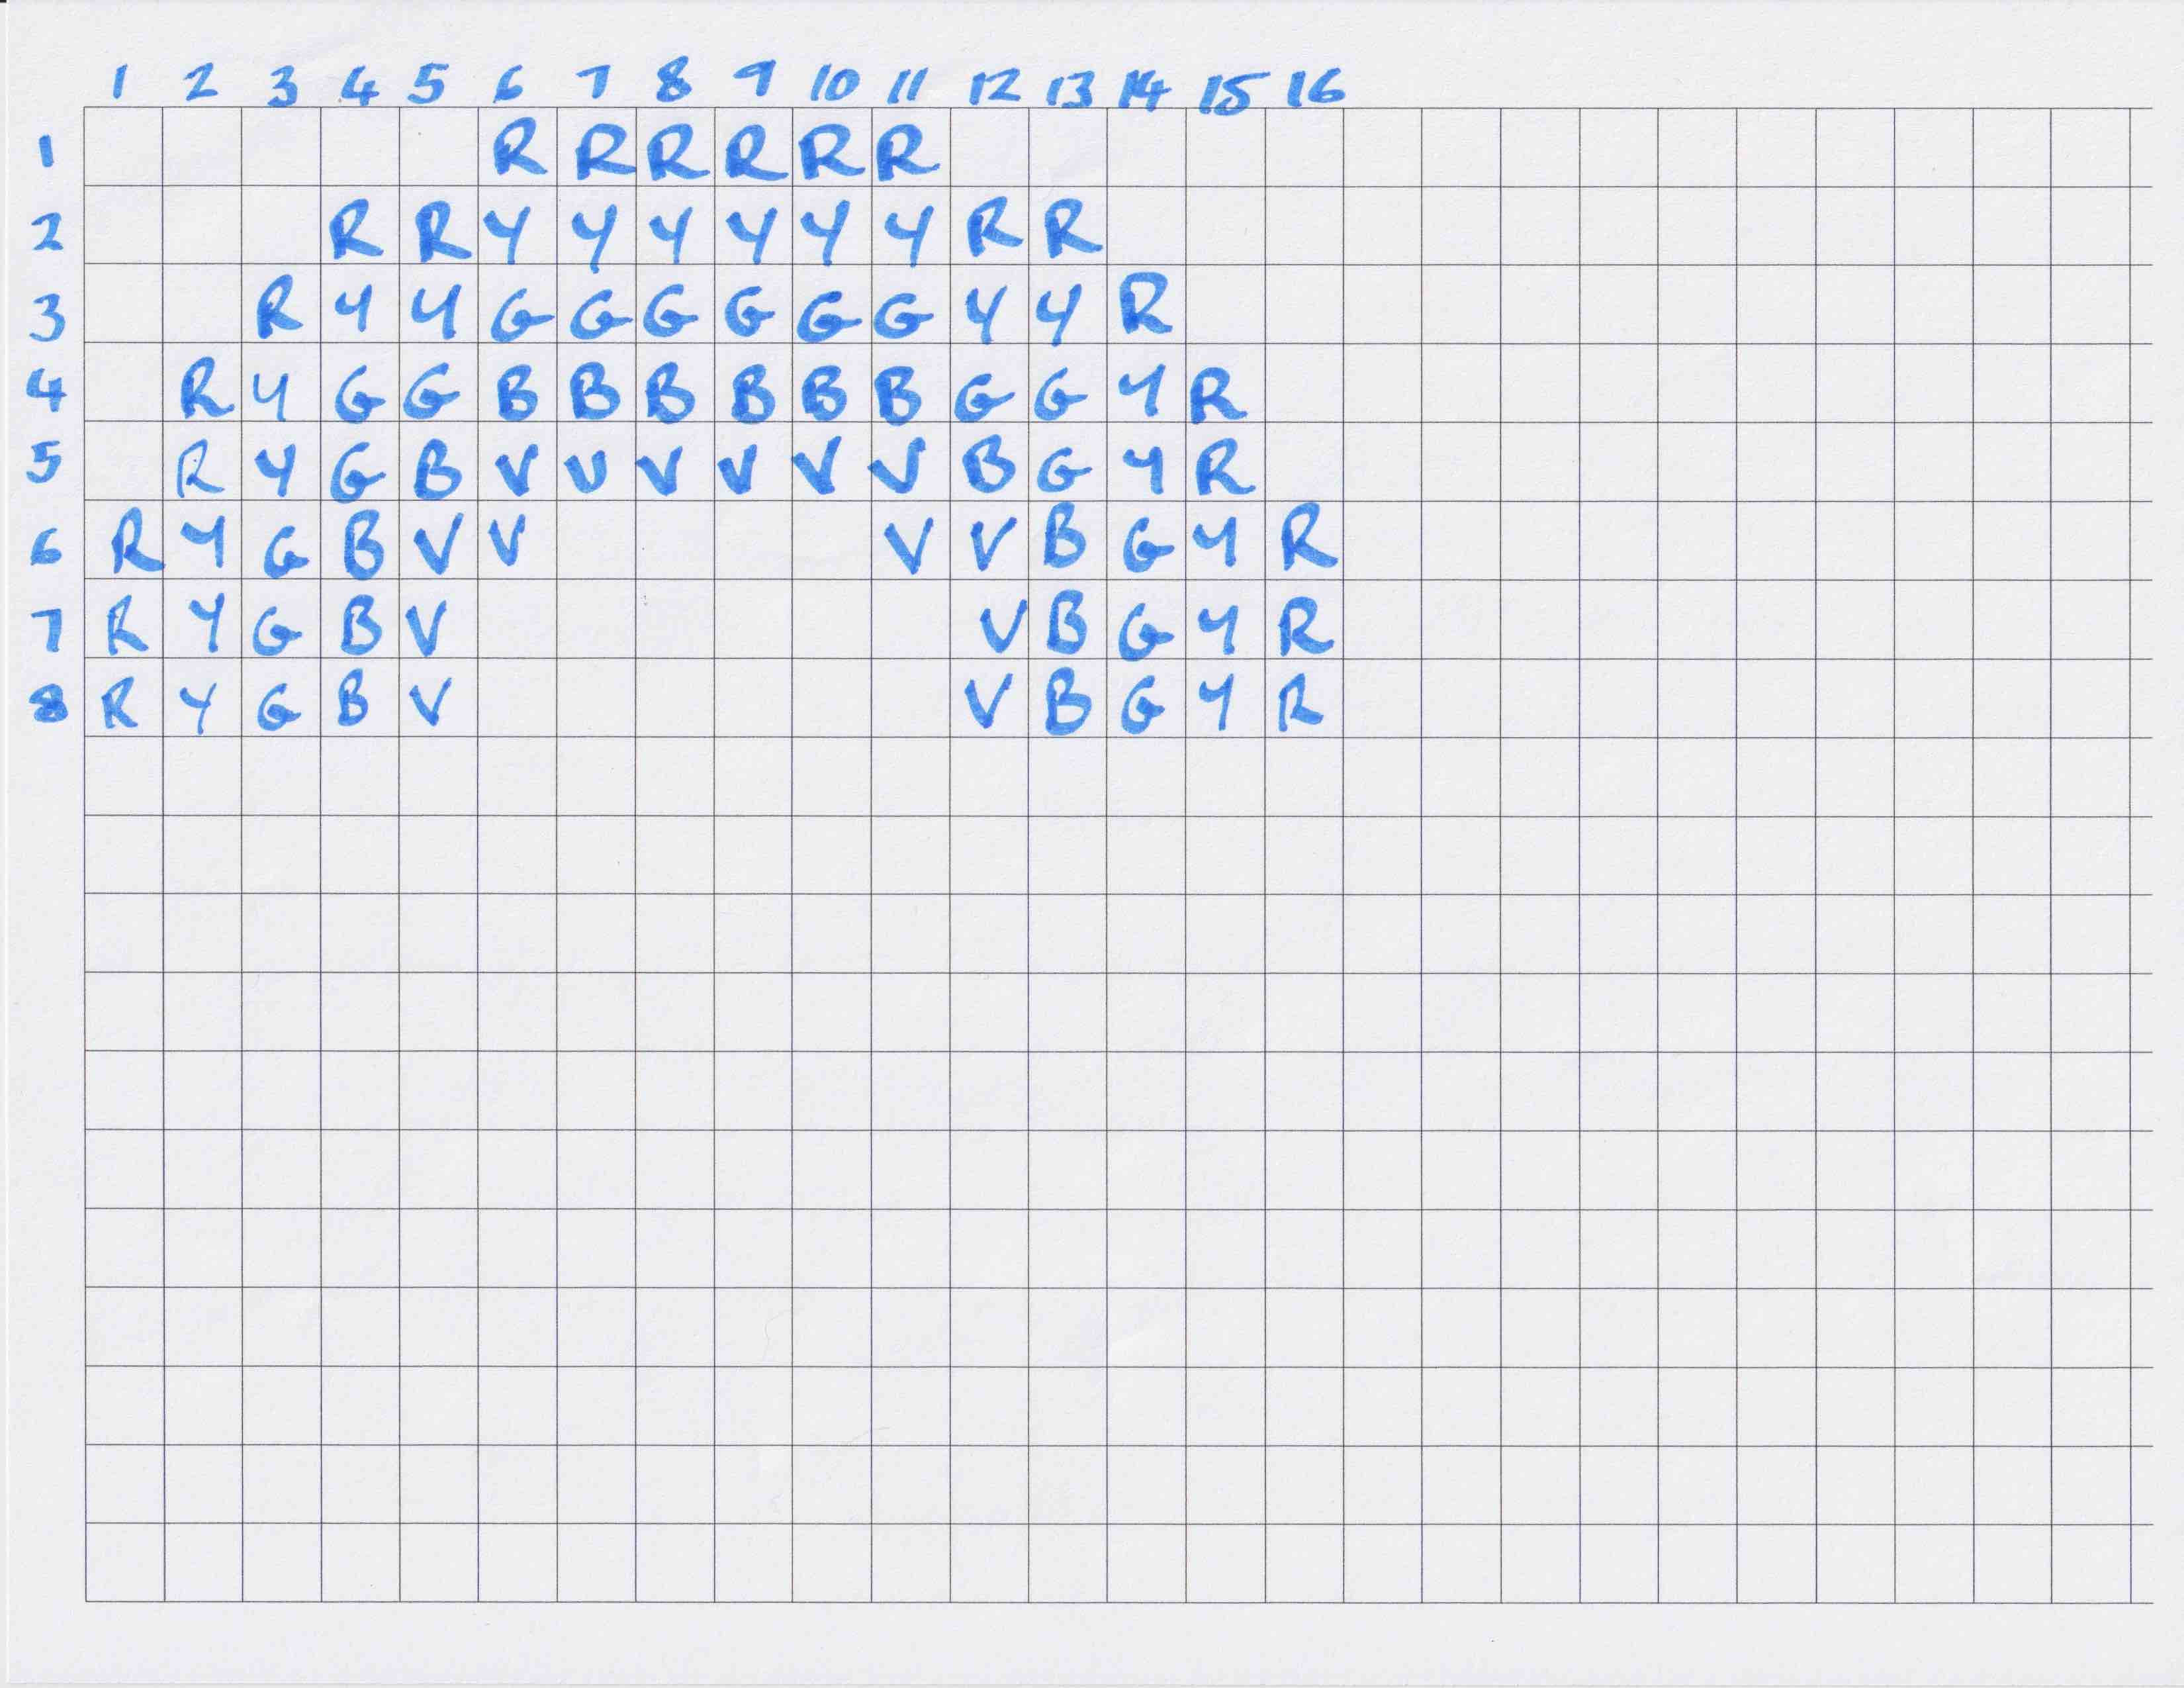 1 2 3 4 5 6 7 8 9 10 11 12 13 14 15 16
1 R R R R R R
2 R R Y Y Y Y Y Y R R
3 R Y Y G G G G G G Y Y R
4 R Y G G B B B B B B G G Y R
5 R Y G B V V V V V V B G Y R
6 R Y G B V V V V B G Y R
7 R Y G B V V B G Y R
8 R Y G B V V B G Y R